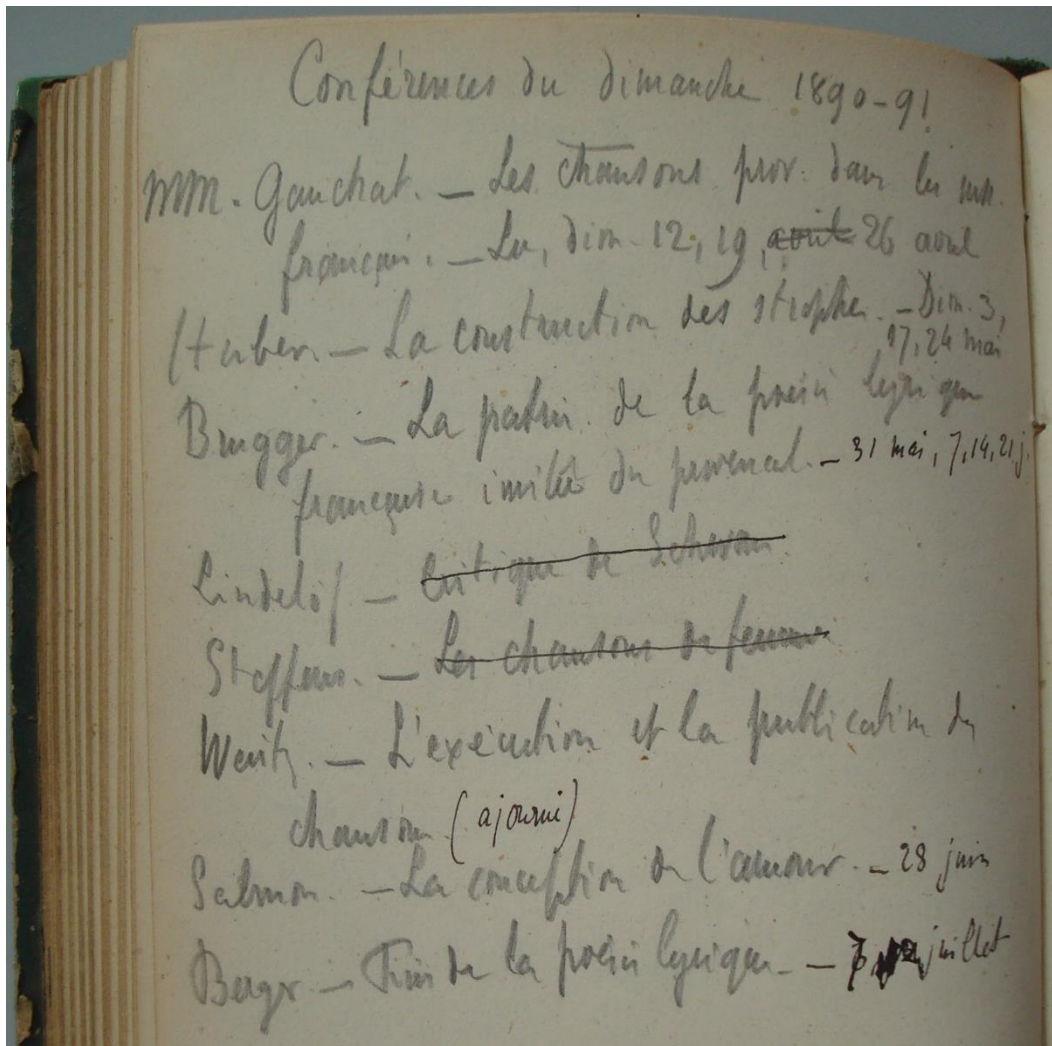 Conférences du dimanche 1890-91
MM. Gauchat. — Les chansons prov. dans les mss.
français. — Lu, dim. 12, 19, avril 26 avril
Huber — La construction des strophes. — Dim. 3,
17, 24 mai
Brugger. — La patrie de la poésie lyrique
française imitée du provençal. — 31 mai, 7, 14, 21 j.
Lindelöf — Critique de
Steffens. — Les chansons de femme
— L'exécution et la publication des
chansons (ajourné)
Salmon. — La conception de l'amour. — 28 juin
— Fin de la poésie lyrique — juillet